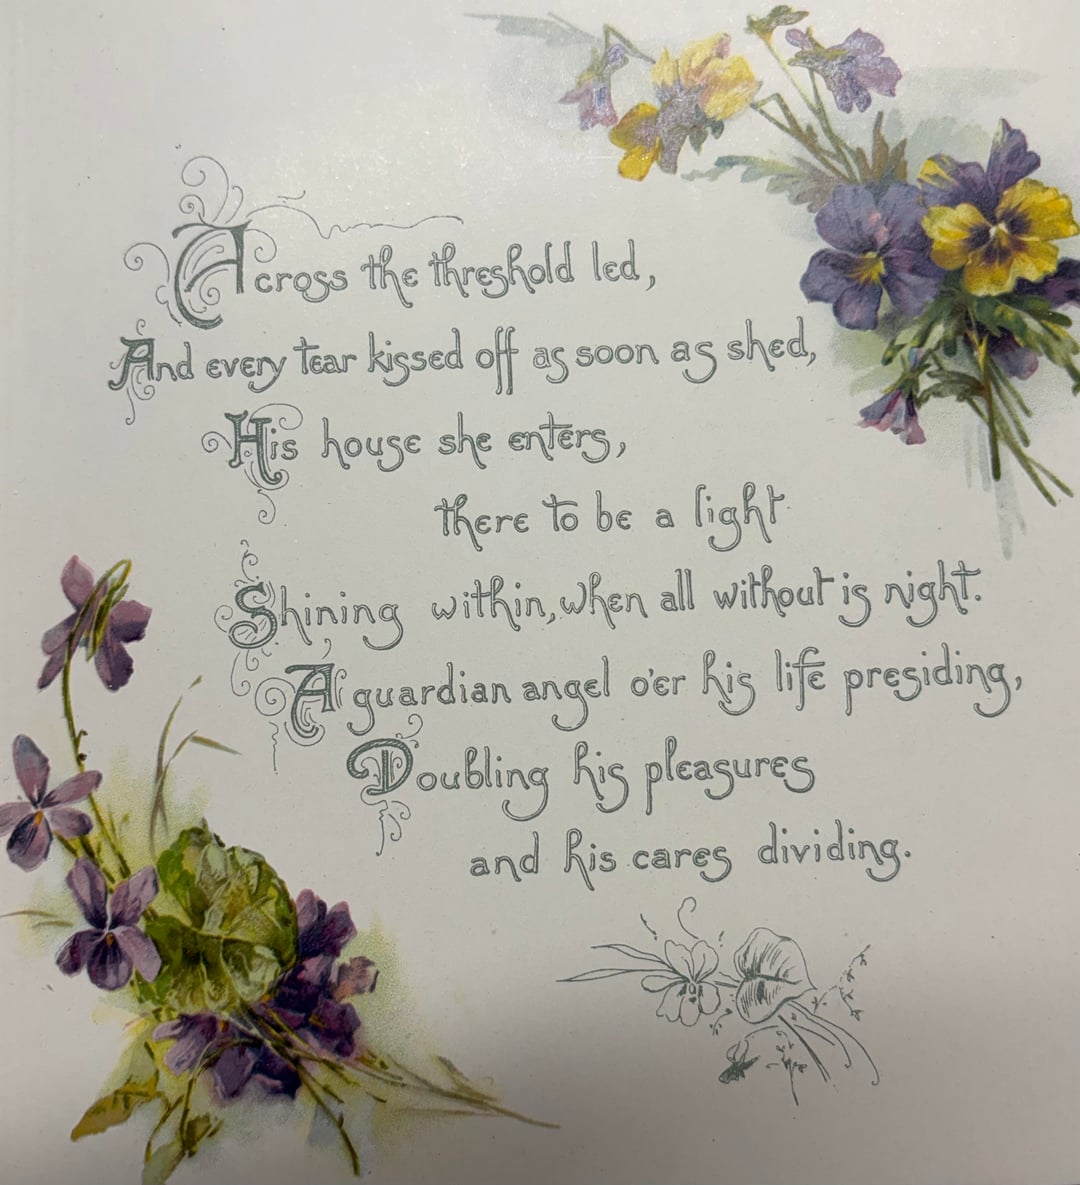 Across the threshold led,
And every tear kissed off as soon as shed,
His house she enters,
there to be a light
Shining within, when all without is night.
A guardian angel o'er his life presiding,
Doubling his pleasures
and his cares dividing.